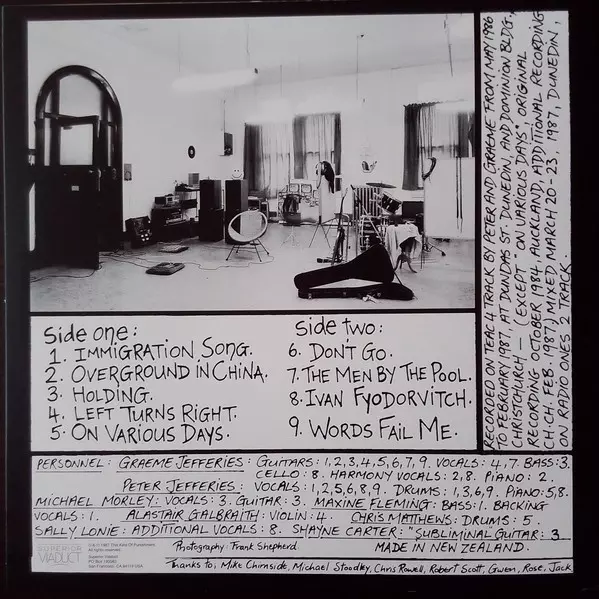 Side one:
1. IMMIGRATION SONG.
2. OVERGROUND IN CHINA.
3. HOLDING.
4. LEFT TURNS RIGHT.
5. ON VARIOUS DAYS.
Side two:
6. DON'T GO.
7. THE MEN BY THE POOL.
8. IVAN FYODORVITCH.
9. WORDS FAIL ME.
RECORDED ON TEAC 4 TRACK BY PETER AND GRAEME FROM MAY 1986
TO FEBRUARY 1987, AT DUNDAS ST. DUNEDIN, AND DOMINION BLDG.,
CHRISTCHURCH – (EXCEPT "ON VARIOUS DAYS" ORIGINAL
RECORDING OCTOBER 1984 AUCKLAND, ADDITIONAL RECORDING
CH.CH. FEB. 1987.) MIXED MARCH 20 - 23, 1987, DUNEDIN,
ON RADIO ONES 2 TRACK.
PERSONNEL: GRAEME JEFFERIES: GUITARS: 1,2,3,4,5,6,7,9. VOCALS: 4,7. BASS: 3.
CELLO: 8. HARMONY VOCALS: 2,8. PIANO: 2.
PETER JEFFERIES: VOCALS: 1,2,5,6,8,9. DRUMS: 1,3,6,9. PIANO: 5,8.
MICHAEL MORLEY: VOCALS: 3. GUITAR: 3. MAXINE FLEMING: BASS: 1. BACKING
VOCALS: 1. ALASTAIR GALBRAITH: VIOLIN: 4. CHRIS MATTHEWS: DRUMS: 5.
SALLY LONIE: ADDITIONAL VOCALS: 8. SHAYNE CARTER: "SUBLIMINAL GUITAR: 3
SUPERIOR
VIADUCT
℗ & © 1987 This Kind Of Punishment.
All rights reserved.
Superior Viaduct
PO Box 193563
San Francisco, CA 94119 USA
Photography: Frank Shepherd
MADE IN NEW ZEALAND.
Thanks to; Mike Chirnside, Michael Stoodley, Chris Rowell, Robert Scott, Gwen, Rose, Jack